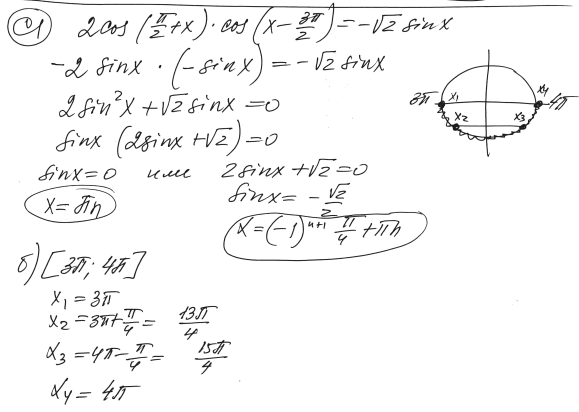 C1 2cos(π/2+x)·cos(x−3π/2)=−√2 sinx
−2 sinx · (−sinx) = −√2 sinx
2sin²x+√2 sinx=0
sinx (2sinx+√2)=0
sinx=0 или 2sinx+√2=0
sinx= −√2/2
x=πn
x=(−1)ⁿ⁺¹ π/4 +πn
3π x₁ x₂ x₃ x₄ 4π
б) [3π; 4π]
x₁ = 3π
x₂ = 3π+π/4 = 13π/4
x₃ = 4π−π/4 = 15π/4
x₄ = 4π